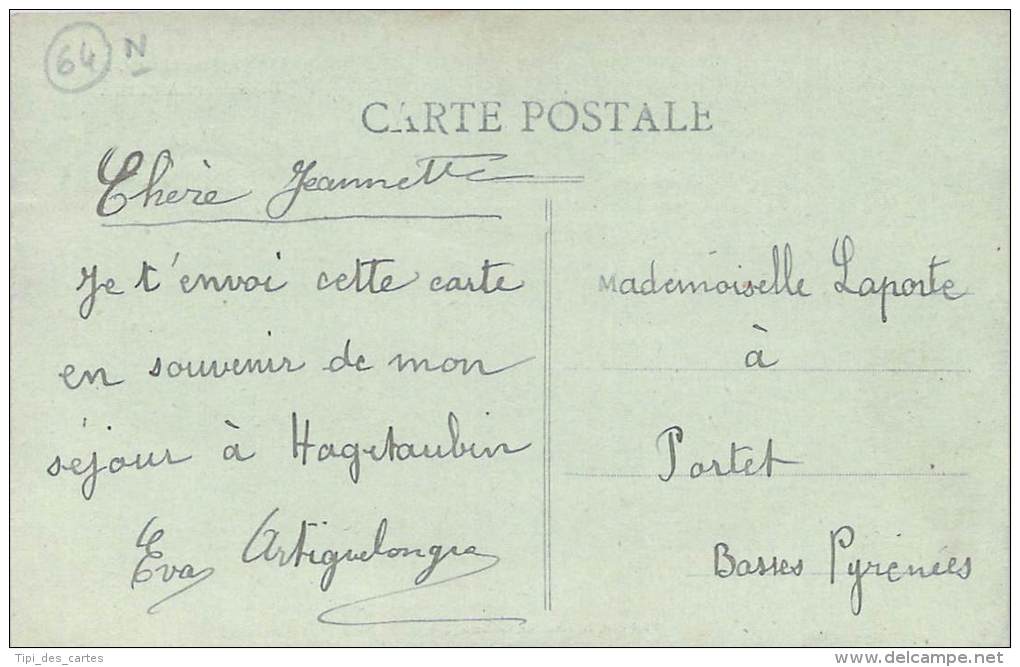 64 N
CARTE POSTALE
Chère Jeannette
Je t'envoi cette carte
en souvenir de mon
séjour à Hagetaubin
Eva Artiguelongue
Mademoiselle Laporte
à
Portet
Basses Pyrénées
Tipi_des_cartes
http://www.delcampe.net